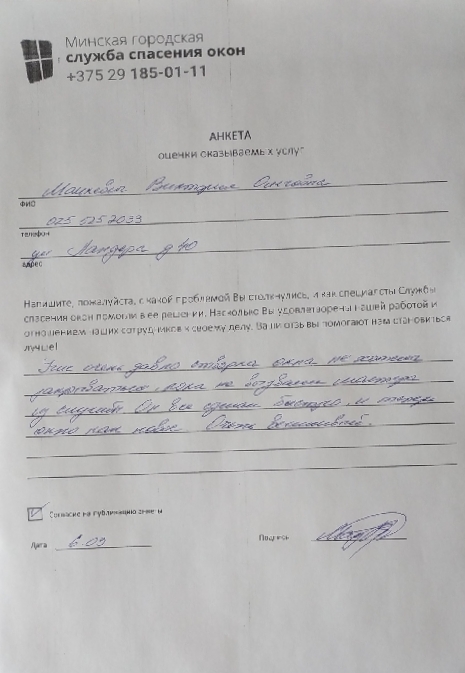 Минская городская
служба спасения окон
+375 29 185-01-11
АНКЕТА
оценки оказываемых услуг
Мацкевич Виктория
ФИО
025 525 2033
телефон
ул Ландера д 40
адрес
Напишите, пожалуйста, с какой проблемой Вы столкнулись, и как специалсты Службы
спасения окон помогли в ее решении. Насколько Вы удовлетворены нашей работой и
отношением наших сотрудников к своему делу. Ваши отзывы помогают нам становиться
лучше!
Уже очень давно створка окна не хотела
закрываться, пока не вызвали мастера
из службы. Он все сделал быстро, и теперь
окно как новое. Очень вежливый.
Согласие на публикацию анкеты
Дата 6.09
Подпись